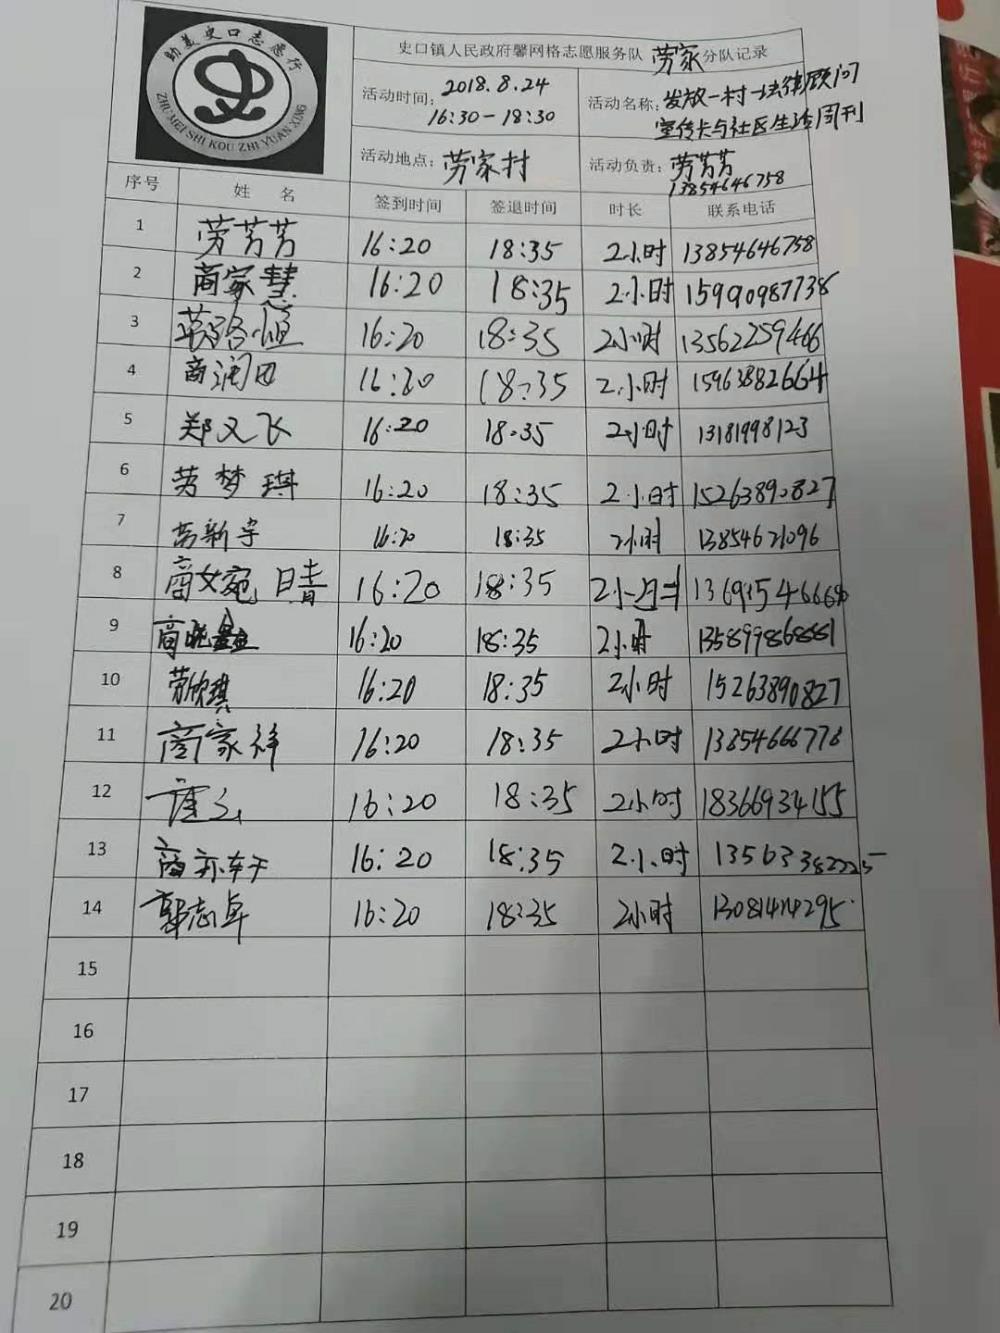 助美史口志愿行
ZHU MEI SHI KOU ZHI YUAN XING
史口镇人民政府馨网格志愿服务队 劳家 分队记录
活动时间: 2018.8.24
16:30-18:30
活动名称: 发放一村一法律顾问
宣传卡与社区生活周刊
活动地点: 劳家村
活动负责: 劳芳芳
13854646758
序号 姓 名 签到时间 签退时间 时长 联系电话
1 劳芳芳 16:20 18:35 2小时 13854646758
2 商家慧 16:20 18:35 2小时 15990987738
3 16:20 18:35 2小时 13562259466
4 商润田 16:20 18:35 2小时 15963882664
5 郑又飞 16:20 18.35 2小时 13181998123
6 劳梦琪 16:20 18:35 2小时 15263890827
7 劳新宇 16:20 18:35 2小时 13854621096
8 商女宛晴 16:20 18:35 2小时
9 商晓 16:20 18:35 2小时
10 劳欣琪 16:20 18:35 2小时 15263890827
11 商家祥 16:20 18:35 2小时 13854666778
12 16:20 18:35 2小时 18366934155
13 商 16:20 18:35 2小时
14 郭志卓 16:20 18:35 2小时 13081414295
15
16
17
18
19
20